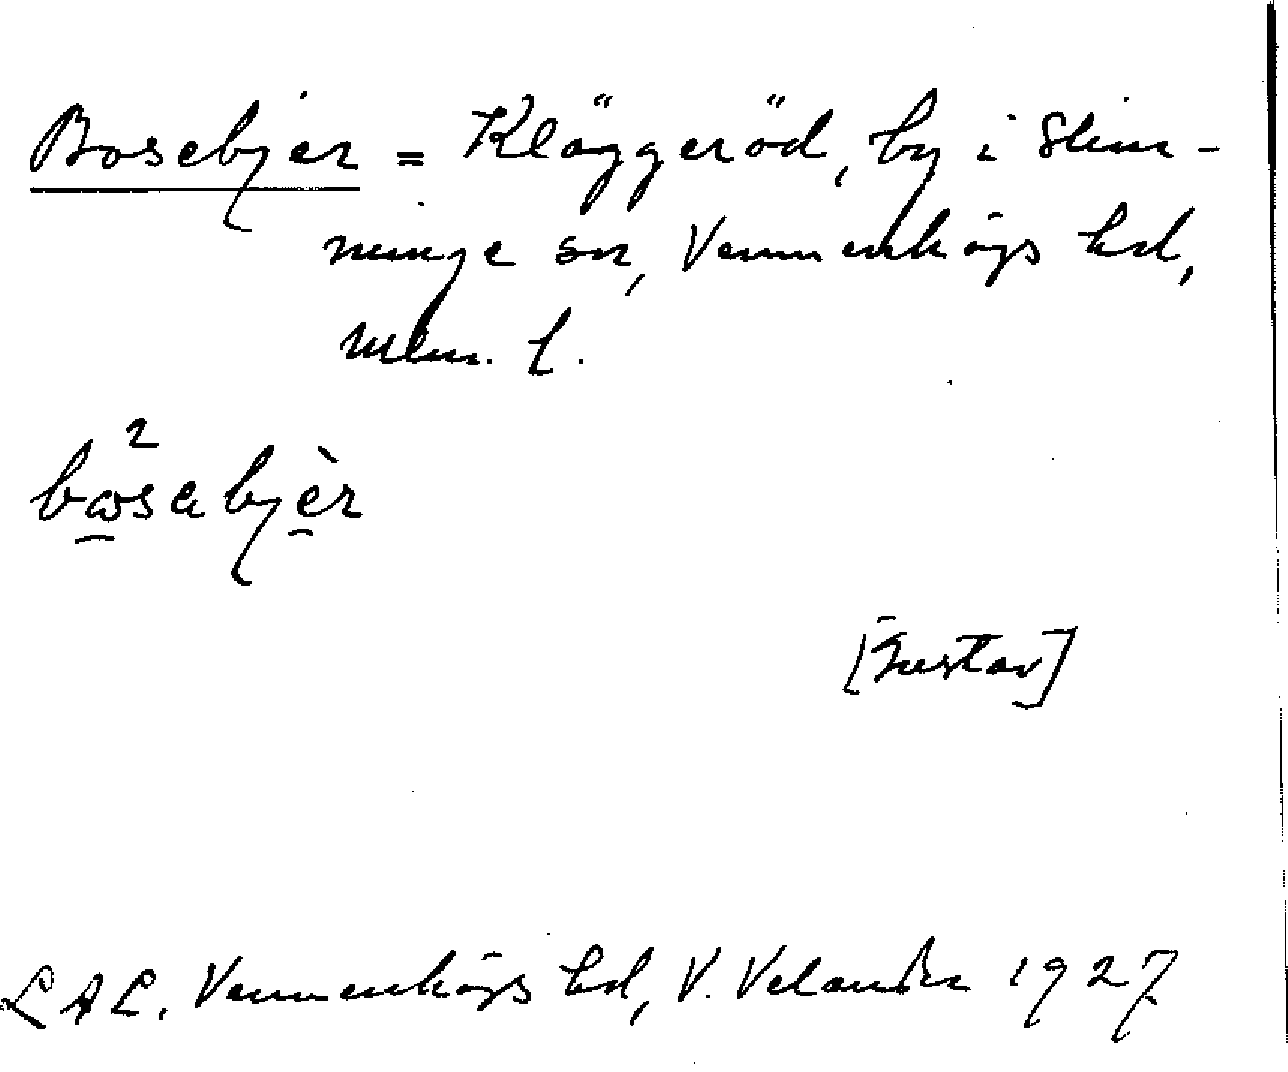 Bosebjer = Kläggeröd, by i Slim-
minge sn, Vemmenhögs hd,
Mlm. l.
bωsabjèr
[Gustav]
LAL. Vemmenhögs hd, V. Velander 1927